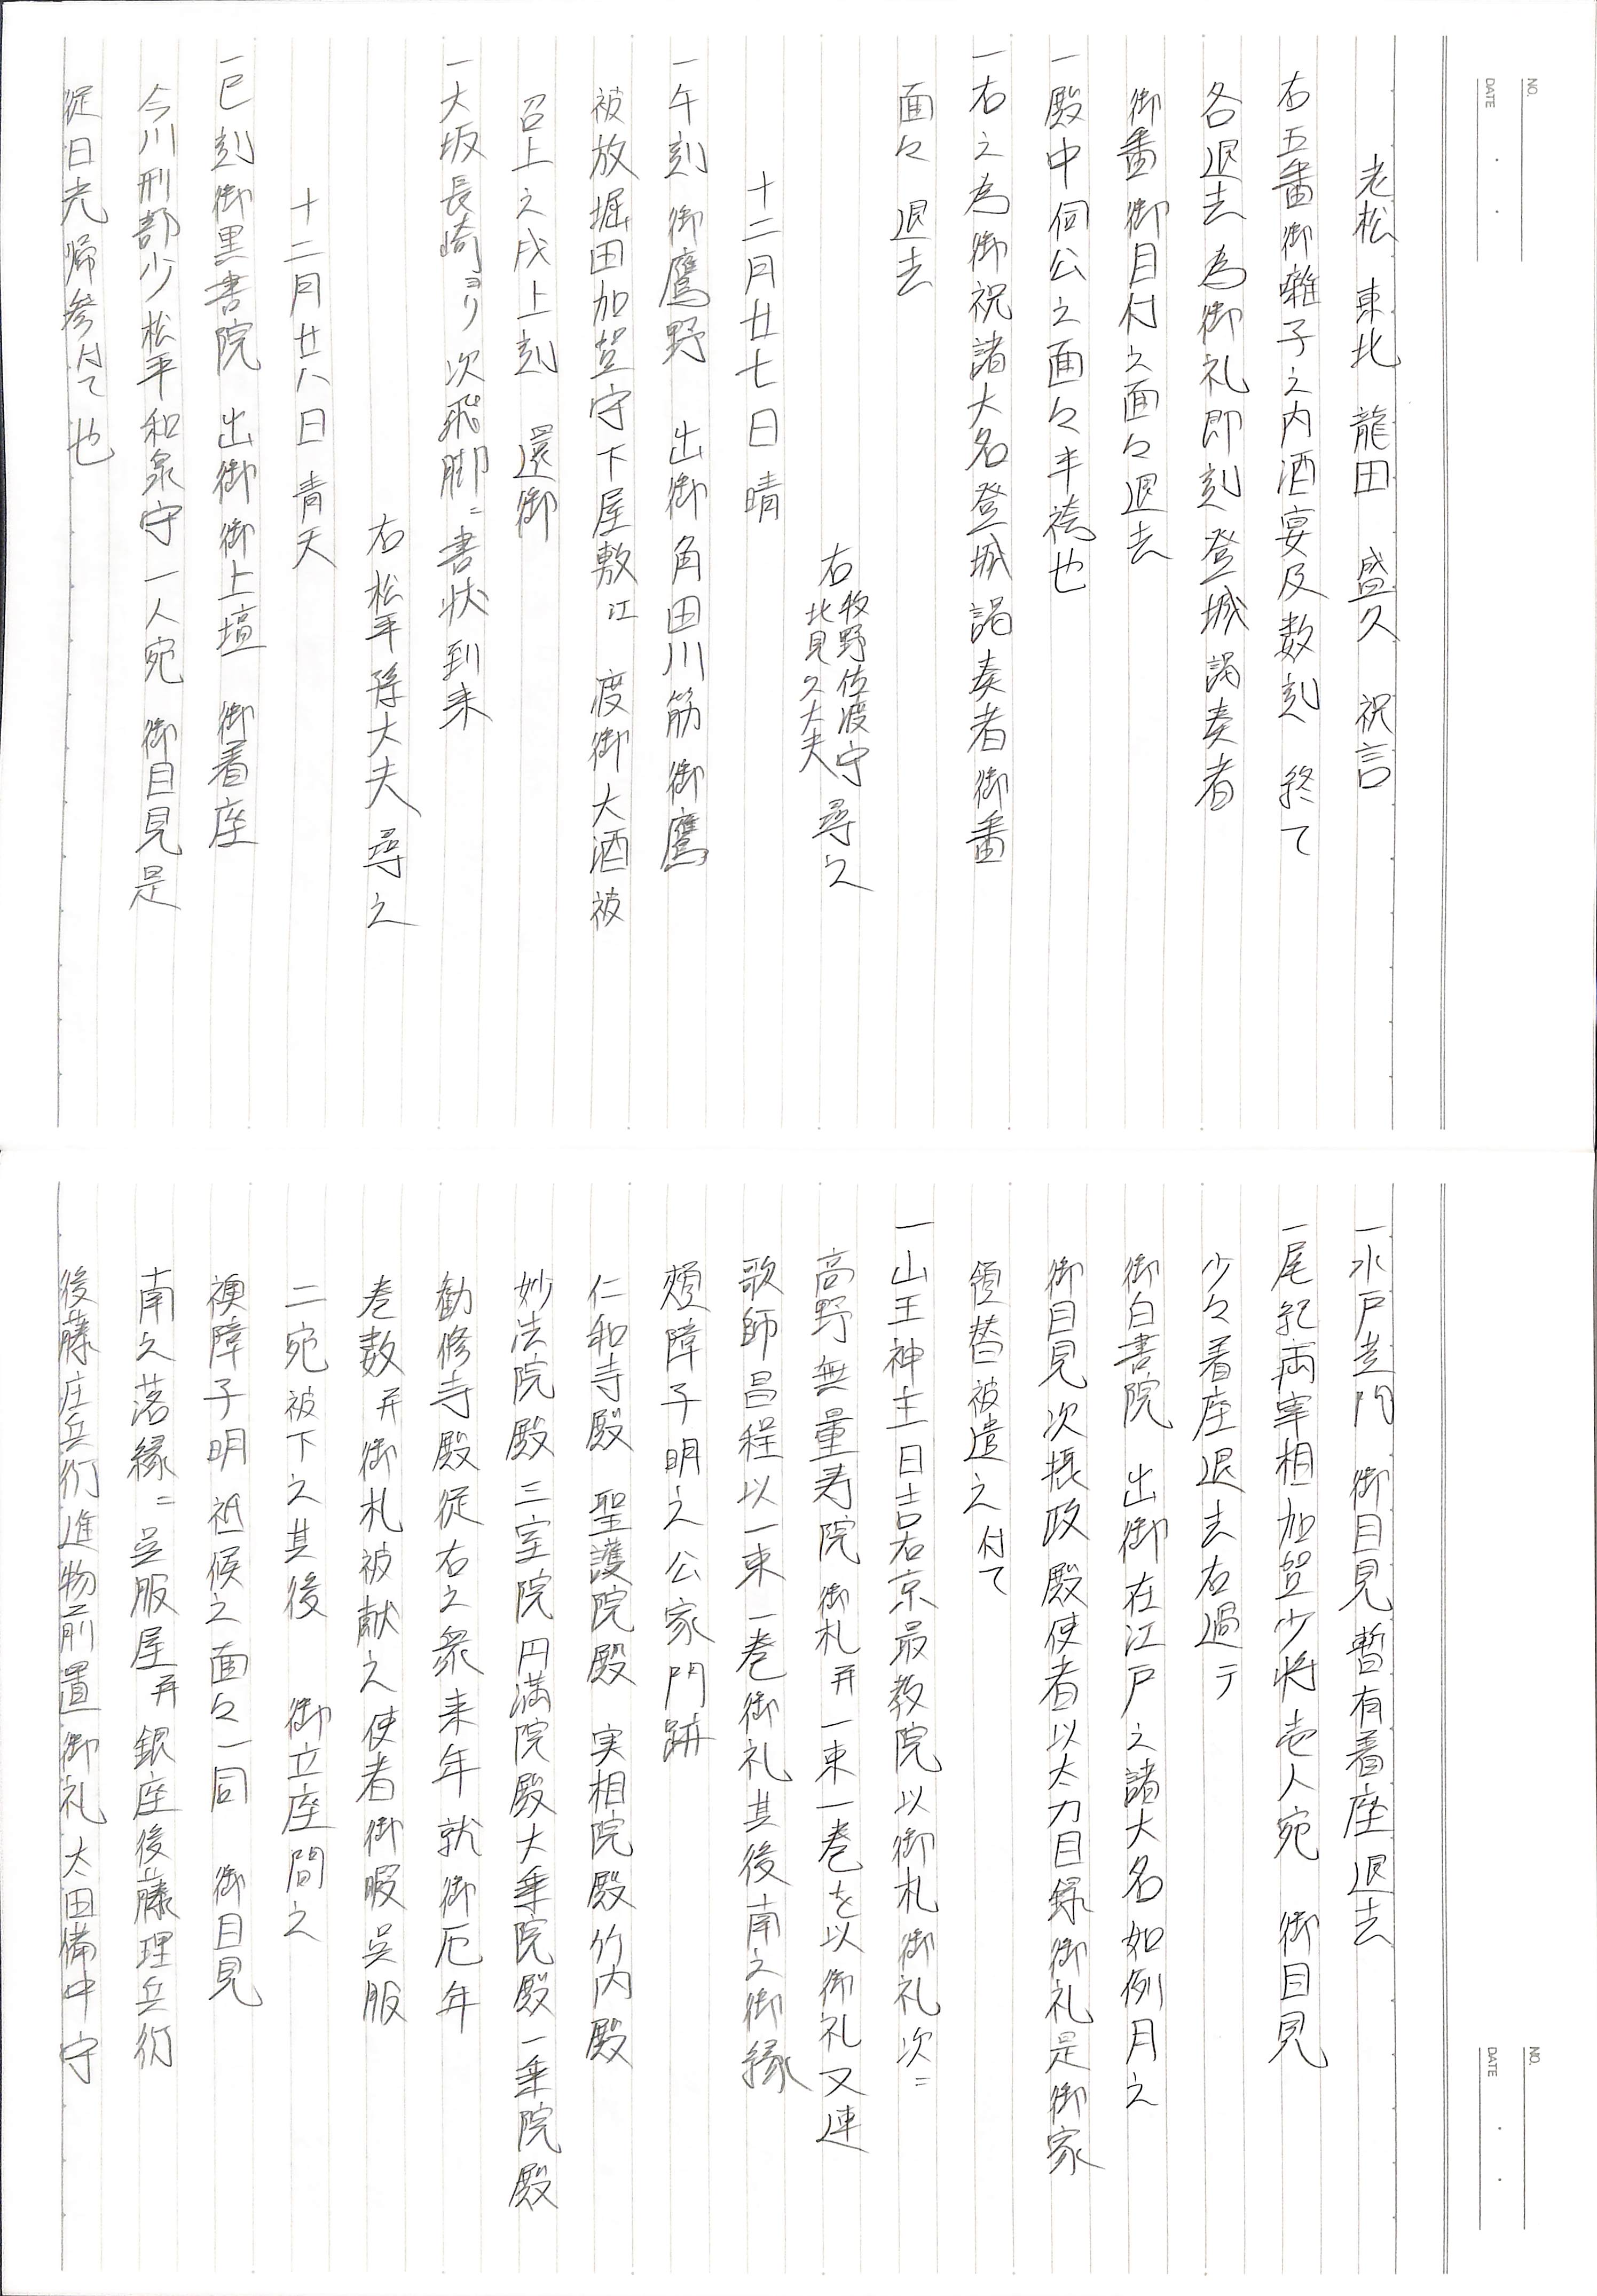 NO.
DATE
老松 東北 龍田 盛久 祝言
右五番御囃子之内酒宴及数刻 終て
各退去為御礼即刻登城謁奏者
御番御目付之面々退去
一殿中伺公之面々半袴也
一右之為御祝諸大名登城謁奏者御番
面々退去
右 牧野佐渡守 北見久大夫 尋之
十二月廿七日 晴
一午刻御鷹野 出御角田川筋御鷹
被放堀田加賀守下屋敷江 渡御大酒被
召上之戌上刻 還御
一大坂長崎ヨリ次飛脚ニ書状到来
右松平隼大夫尋之
十二月廿八日 青天
一巳刻御黒書院 出御御上壇 御着座
今川刑部少松平和泉守一人宛 御目見是
従日光帰参付て也
NO.
DATE
一水戸黄門 御目見暫有着座退去
一尾紀両宰相加賀少将壱人宛 御目見
少々着座退去右過テ
御白書院 出御在江戸之諸大名如例月之
御目見次摂政殿使者以太刀目録御礼是御家
領替被遣之付て
一山王神主日吉右京最教院以御札御礼次ニ
高野無量寿院御札并一束一巻を以御礼又連
歌師昌程以一束一巻御礼其後南之御縁
頬障子明之公家門跡
仁和寺殿 聖護院殿 実相院殿 竹内殿
妙法院殿 三宝院 円満院殿 大乗院殿 一乗院殿
勧修寺殿従右之衆来年就御厄年
巻数并御札被献之使者御暇呉服
二宛被下之其後 御立座間之
襖障子明祗候之面々一同 御目見
南之落縁ニ呉服屋并銀座後藤理兵衛
後藤庄兵衛進物前置御礼太田備中守